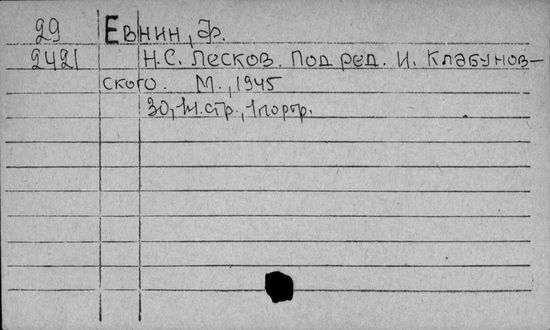 29 Евнин, Ф.
2421 Н.С. Лесков. Под ред. И. Клабунов-
ского. М., 1945
30, 1н. стр., 1 портр.